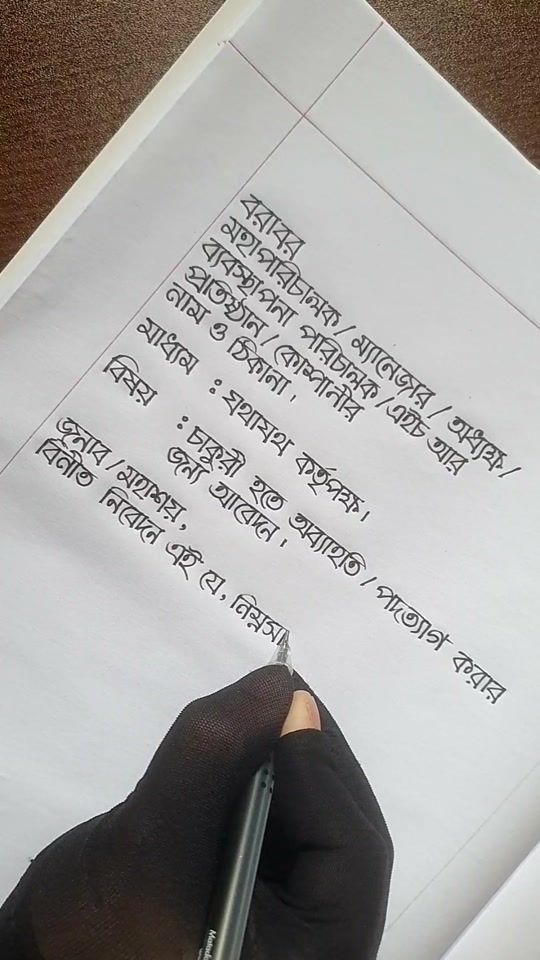 বরাবর
মহাপরিচালক / ম্যানেজার / অধ্যক্ষ /
ব্যবস্থাপনা পরিচালক / এইচ আর
প্রতিষ্ঠান / কোম্পানীর
নাম ও ঠিকানা।
মাধ্যম : যথাযথ কর্তৃপক্ষ।
বিষয় : চাকুরী হতে অব্যাহতি / পদত্যাগ করার
জন্য আবেদন।
জনাব / মহাশয়,
বিনীত নিবেদন এই যে, নিম্নসা